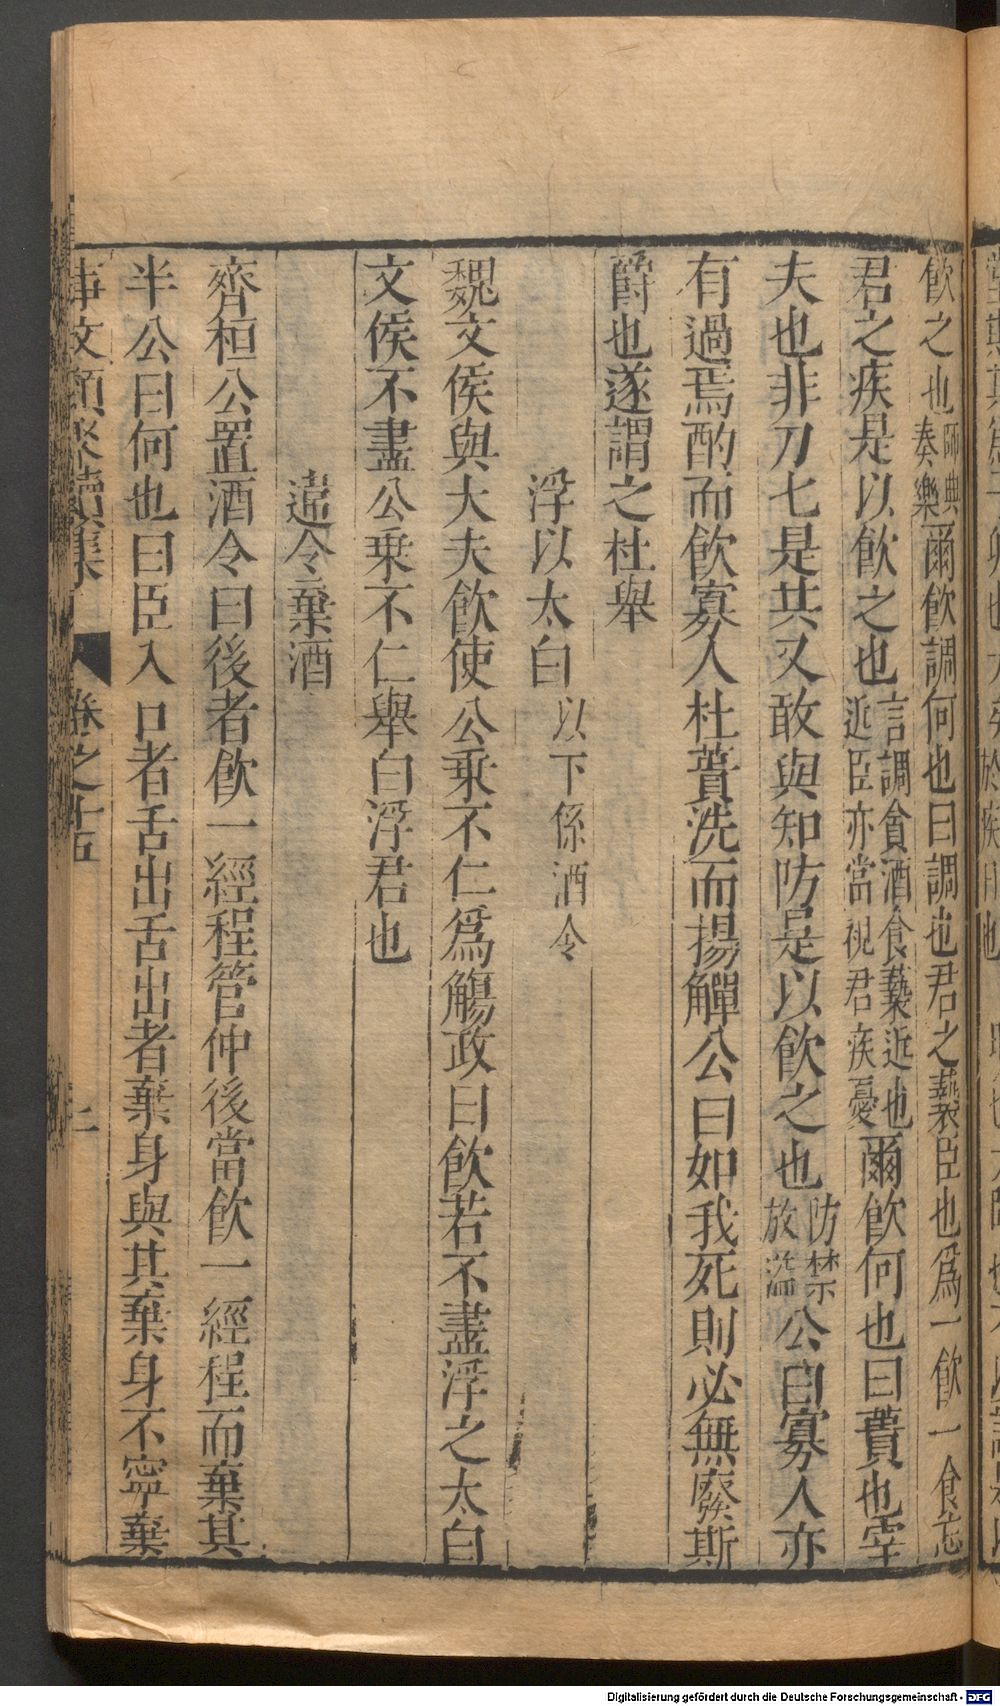 飲之也師典奏樂爾飲調何也曰調也君之褻臣也爲一飲一食忘
君之疾是以飲之也言調貪酒食褻近也近臣亦當視君疾憂爾飲何也曰蕢也宰
夫也非刀匕是共又敢與知防是以飲之也防禁放溢公曰寡人亦
有過焉酌而飲寡人杜蕢洗而揚觶公曰如我死則必無廢斯
爵也遂謂之杜舉
浮以太白 以下係酒令
魏文侯與大夫飲使公乗不仁爲觴政曰飲若不盡浮之太白
文侯不盡公乗不仁舉白浮君也
違令棄酒
齊桓公置酒令曰後者飲一經程管仲後當飲一經程而棄其
半公曰何也曰臣入口者舌出舌出者棄身與其棄身不寧棄
事文類聚續集 卷之十五
Digitalisierung gefördert durch die Deutsche Forschungsgemeinschaft - DFG